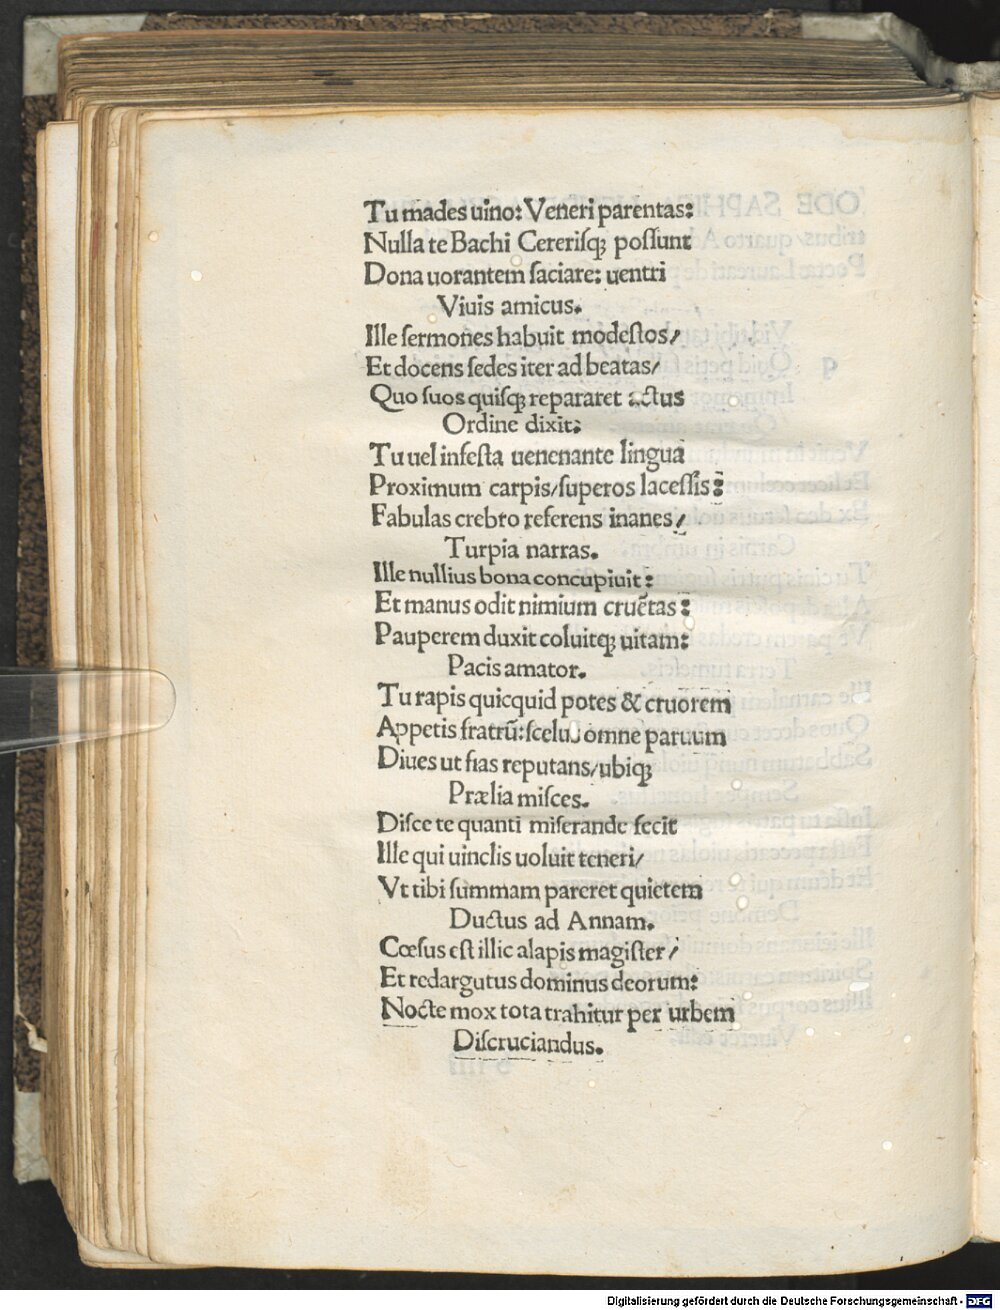 Tu mades uino: Veneri parentas:
Nulla te Bachi Cererisqꝫ possunt
Dona uorantem saciare: uentri
Viuis amicus.
Ille sermones habuit modestos/
Et docens sedes iter ad beatas/
Quo suos quisqꝫ repararet actus
Ordine dixit:
Tu uel infesta uenenante lingua
Proximum carpis/superos lacessis:
Fabulas crebro referens inanes/
Turpia narras.
Ille nullius bona concupiuit:
Et manus odit nimium cruẽtas:
Pauperem duxit coluitqꝫ uitam:
Pacis amator.
Tu rapis quicquid potes & cruorem
Appetis fratrũ: scelus omne paruum
Diues ut fias reputans/ubiqꝫ
Prælia misces.
Disce te quanti miserande fecit
Ille qui uinclis uoluit teneri/
Vt tibi summam pareret quietem
Ductus ad Annam.
Cœsus est illic alapis magister/
Et redargutus dominus deorum:
Nocte mox tota trahitur per urbem
Discruciandus.
Digitalisierung gefördert durch die Deutsche Forschungsgemeinschaft - DFG